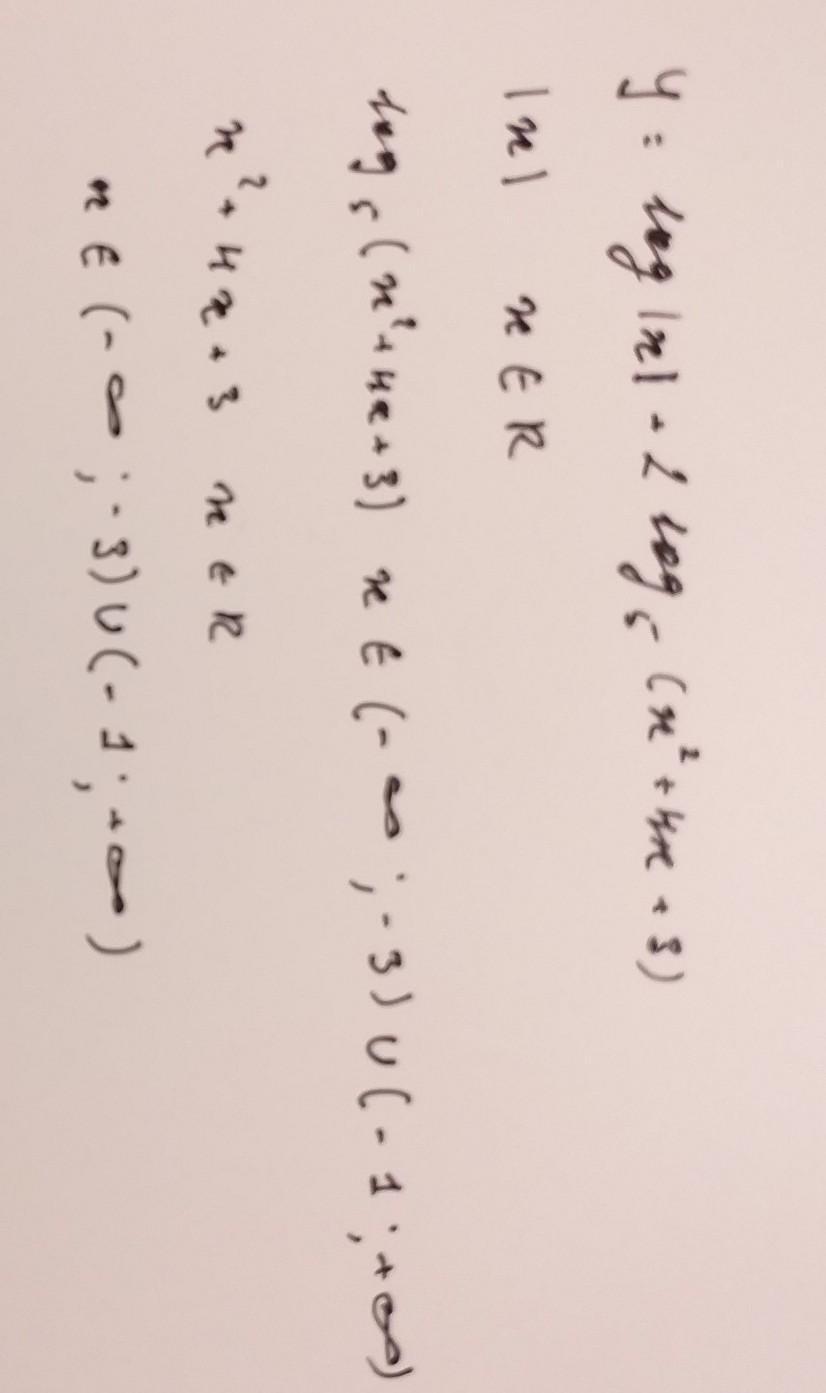 y = log |x| + 2 log₅ (x² + 4x + 3)
|x| x ∈ R
log₅ (x² + 4x + 3) x ∈ (- ∞ ; - 3) ∪ (- 1 ; + ∞)
x² + 4x + 3 x ∈ R
x ∈ (- ∞ ; - 3) ∪ (- 1 ; + ∞)